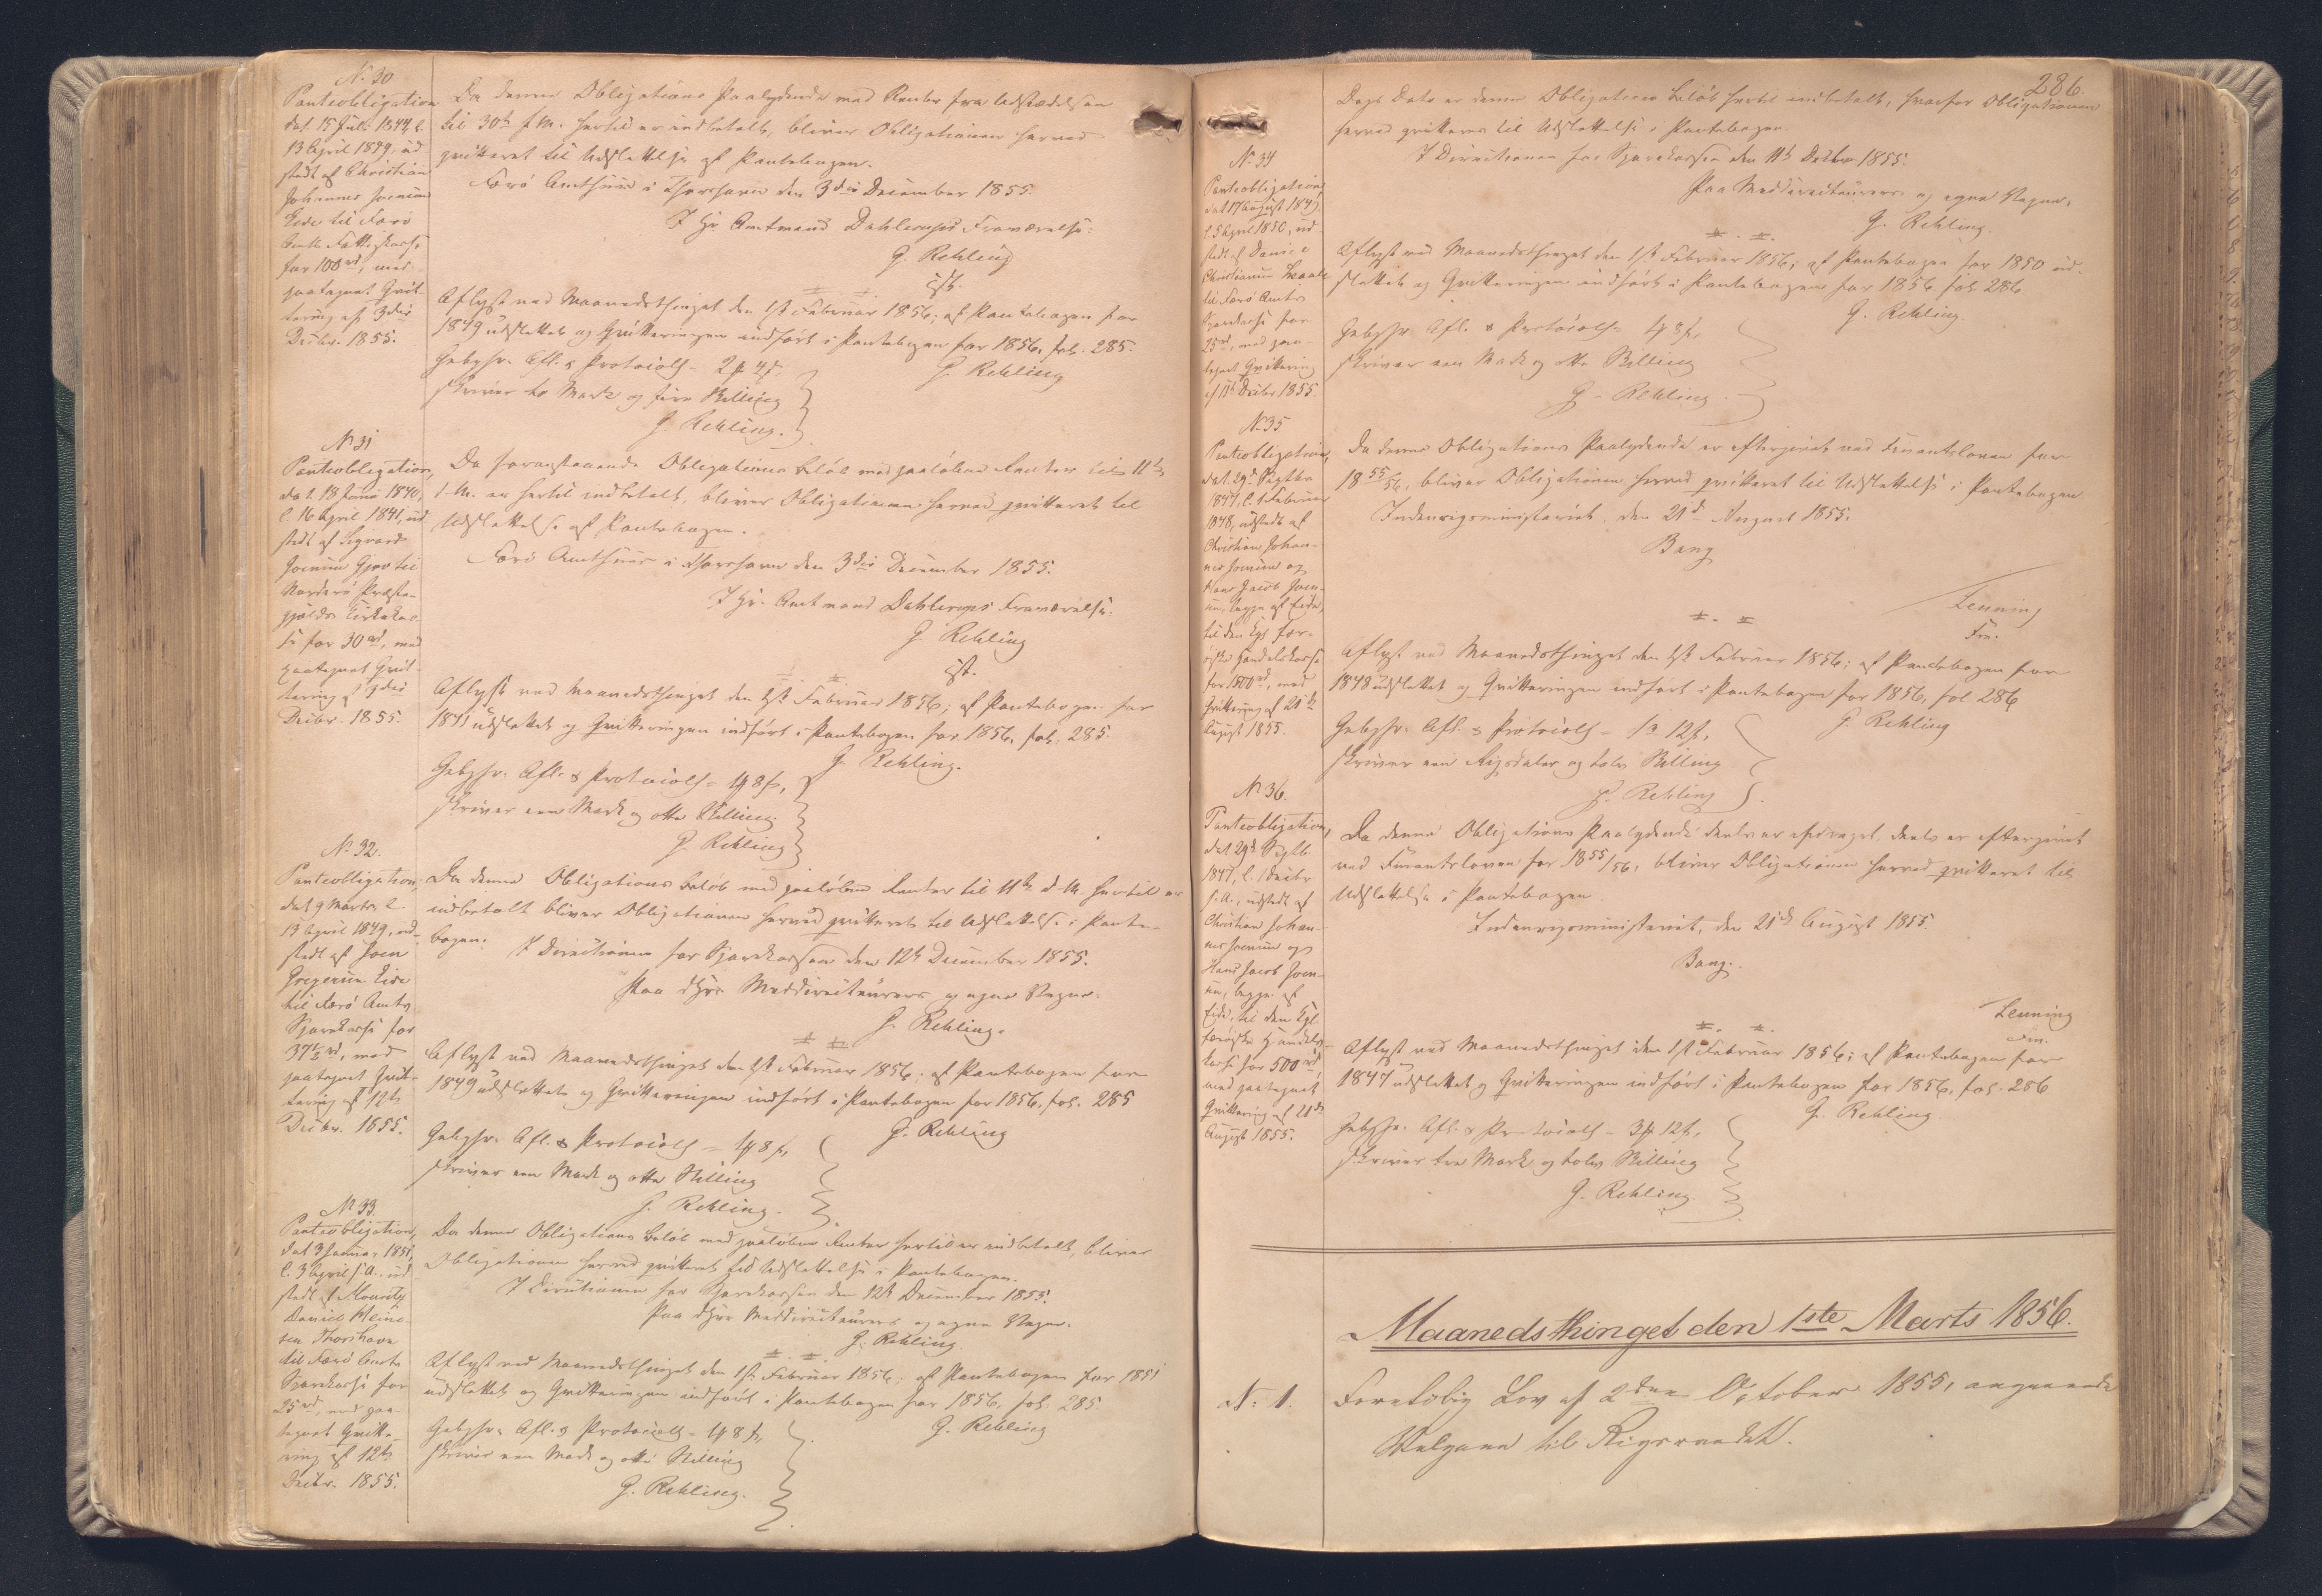 N. 30
Panteobligation
dat. 15 Juli 1844, l.
13 April 1849, ud
stedt af Christian
Johannes Joensen
Eide til Færö
Amts Fattigkasse
for 100 rd, med
paategnet Qvit-
tering af 3die
Decbr. 1855.
Da denne Obligations Paalydende med Renter fra Udstædelsen
til 30te f.M. hertil er indbetalt, bliver Obligationen herved
qvitteret til Udslettelse af Pantebogen.
Færö Amthuus i Thorshavn den 3die December 1855.
I Hr. Amtmand Dahlerups Fraværelse:
G. Rehling
cst.
Aflyst ved Maanedsthinget den 1ste Februar 1856; af Pantebogen for
1849 udslettet og Qvitteringen indfört i Pantebogen for 1856, fol. 285.
G. Rehling
Gebyhr. Afl. & Protocoll - 2 4,
skriver to Mark og fire Skilling
G. Rehling.
N. 31
Panteobligation,
dat. 18 Juni 1840,
l. 16 April 1841, ud
stedt af Sigvard
Joensen Gjov til
Norderö Præste-
gjelds Kirkekas-
se for 30 rd, med
paategnet Qvit-
tering af 3die
Decbr. 1855.
Da foranstaaende Obligations Belöb med paalöbne Renter til 11te
d.M. er hertil indbetalt, bliver Obligationen herved qvitteret til
Udslettelse af Pantebogen.
Færö Amthuus i Thorshavn den 3die December 1855.
I Hr. Amtmand Dahlerups Fraværelse:
G. Rehling
cst.
Aflyst ved Maanedsthinget den 1ste Februar 1856; af Pantebogen for
1841 udslettet og Qvitteringen indfört i Pantebogen for 1856, fol. 285.
G. Rehling.
Gebyhr. Afl. & Protocoll - 1 8,
skriver een Mark og otte Skilling
G. Rehling
N. 32.
Panteobligation
dat 9 Marts, l.
13 April 1849, ud-
stedt af Joen
Gregersen Eide
til Færö Amts
Sparekasse for
37½ rd, med
paategnet Qvit-
tering af 12te
Decbr. 1855.
Da denne Obligations Belöb med paalöbne Renter til 11te d.M. hertil er
indbetalt bliver Obligationen herved qvitteret til Udslettelse i Pante-
bogen.
I Directionen for Sparekassen den 12te December 1855.
Paa Meddirecteurers og egne Vegne.
G. Rehling.
Aflyst ved Maanedsthinget den 1ste Februar 1856; af Pantebogen for
1849 udslettet og Qvitteringen indfört i Pantebogen for 1856, fol. 285
G. Rehling
Gebyhr. Afl. & Protocoll - 1 8,
skriver een Mark og otte Skilling
G. Rehling.
N. 33.
Panteobligation,
dat 3 Januar 1851,
l. 3 April s.A., ud
stedt af Mouritz
Daniel Heine-
sen Thorshavn
til Færö Amts
Sparekasse for
25 rd, med paa-
tegnet Qvitte-
ring af 12te
Decbr. 1855.
Da denne Obligations Belöb med paalöbne Renter hertil er indbetalt, bliver
Obligationen herved qvitteret til Udslettelse i Pantebogen.
I Directionen for Sparekassen den 12te December 1855.
Paa Meddirecteurers og egne Vegne.
G. Rehling.
Aflyst ved Maanedsthinget den 1ste Februar 1856; af Pantebogen for 1851
udslettet og Qvitteringen indfört i Pantebogen for 1856, fol. 285.
G. Rehling
Gebyhr. Afl. & Protocoll - 1 8,
skriver een Mark og otte Skilling
G. Rehling.
286.
Dags Dato er denne Obligations Belöb hertil indbetalt, hvorfor Obligationen
herved qvitteres til Udslettelse i Pantebogen.
I Directionen for Sparekassen den 11te Decbr 1855.
Paa Meddirecteurers og egne Vegne,
G. Rehling.
N. 34
Panteobligation,
dat 17 August 1849,
l. 5 April 1850, ud-
stedt af Daniel
Christiansen
til Færö Amts
Sparekasse for
25 rd, med paa-
tegnet Qvittering
af 11te Decbr 1855.
Aflyst ved Maanedsthinget den 1ste Februar 1856; af Pantebogen for 1850 ud-
slettet og Qvitteringen indfört i Pantebogen for 1856 fol. 286
G. Rehling.
Gebyhr. Afl. & Protocoll - 1 8,
skriver een Mark og otte Skilling
G. Rehling.
N. 35
Panteobligation,
dat. 29de Septbr
1847, l. 1 Februar
1848, udstedt af
Christian Johan-
nes Joensen og
Hans Jacob Joen-
sen, begge af Eide,
til den Kgl. Fær-
öiske Handelskasse
for 1500 rd, med
Qvittering af 21de
August 1855.
Da denne Obligations Paalydende er eftergivet ved Finantsloven for
1855/56, bliver Obligationen herved qvitteret til Udslettelse i Pantebogen
Indenrigsministeriet, den 21de August 1855.
Bang
Lenning
Fm.
Aflyst ved Maanedsthinget den 1ste Februar 1856; af Pantebogen for
1848 udslettet og Qvitteringen indfört i Pantebogen for 1856, fol 286
G. Rehling
Gebyhr. Afl. & Protocoll - 1 12,
skriver een Rigsdaler og tolv Skilling
G. Rehling
N. 36.
Panteobligation,
dat 29de Septb.
1847, l. 1 Decbr
s.A., udstedt af
Christian Johan-
nes Joensen og
Hans Jacob Joen-
sen, begge af
Eide, til den Kgl.
færöiske Handels-
kasse for 500 rd
med paategnet
Qvittering af 21de
August 1855.
Da denne Obligations Paalydende deels er afdraget, deels er eftergivet
ved Finantsloven for 1855/56, bliver Obligationen herved qvitteret til
Udslettelse i Pantebogen.
Indenrigsministeriet, den 21de August 1855.
Bang.
Lenning
Fm.
Aflyst ved Maanedsthinget den 1ste Februar 1856; af Pantebogen for
1847 udslettet og Qvitteringen indfört i Pantebogen for 1856, fol. 286
G. Rehling
Gebyhr. Afl. & Protocoll - 3 12,
skriver tre Mark og tolv Skilling
G. Rehling.
Maanedsthinget den 1ste Marts 1856.
N. 1.
Forelöbig Lov af 2den October 1855, angaaende
Valgene til Rigsraadet.